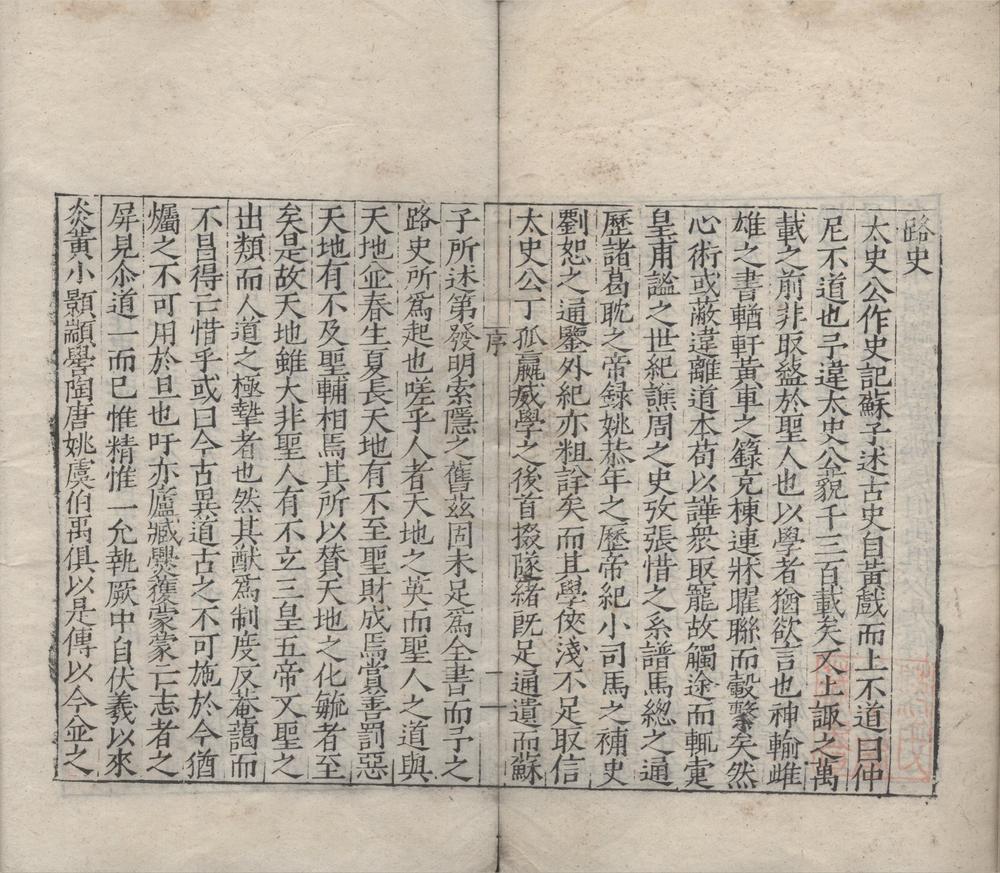 路史
太史公作史記蘇子述古史自黃戲而上不道曰仲
尼不道也予違太史公藐千三百載矣不上諏之萬
載之前非取盭於聖人也以學者猶欲言也神輸雌
雄之書輶軒黃車之錄克棟連牀曜聯而轂擊矣然
心術或蔽違離道本苟以譁衆取寵故觸途而輒疐
皇甫謐之世紀譙周之史攷張愔之系譜馬總之通
歷諸葛耽之帝錄姚恭年之歷帝紀小司馬之補史
劉恕之通鑒外紀亦粗詳矣而其學俠淺不足取信
太史公丁孤嬴威學之後首掇隧緒旣足通遺而蘇
序
一
子所述第發明索隱之舊茲固未足爲全書而予之
路史所爲起也嗟乎人者天地之英而聖人之道與
天地並春生夏長天地有不至聖財成焉賞善罰惡
天地有不及聖輔相焉其所以賛天地之化毓者至
矣是故天地雖大非聖人有不立三皇五帝又聖之
出類而人道之極摯者也然其猷爲制度反菴藹而
不昌得亡惜乎或曰今古異道古之不可施於今猶
爥之不可用於旦也吁亦廬臧爨獲蒙蒙亡志者之
屏見尒道一而已惟精惟一允執厥中自伏羲以來
炎黃小顥顓嚳陶唐姚虞伯禹俱以是傳以今並之